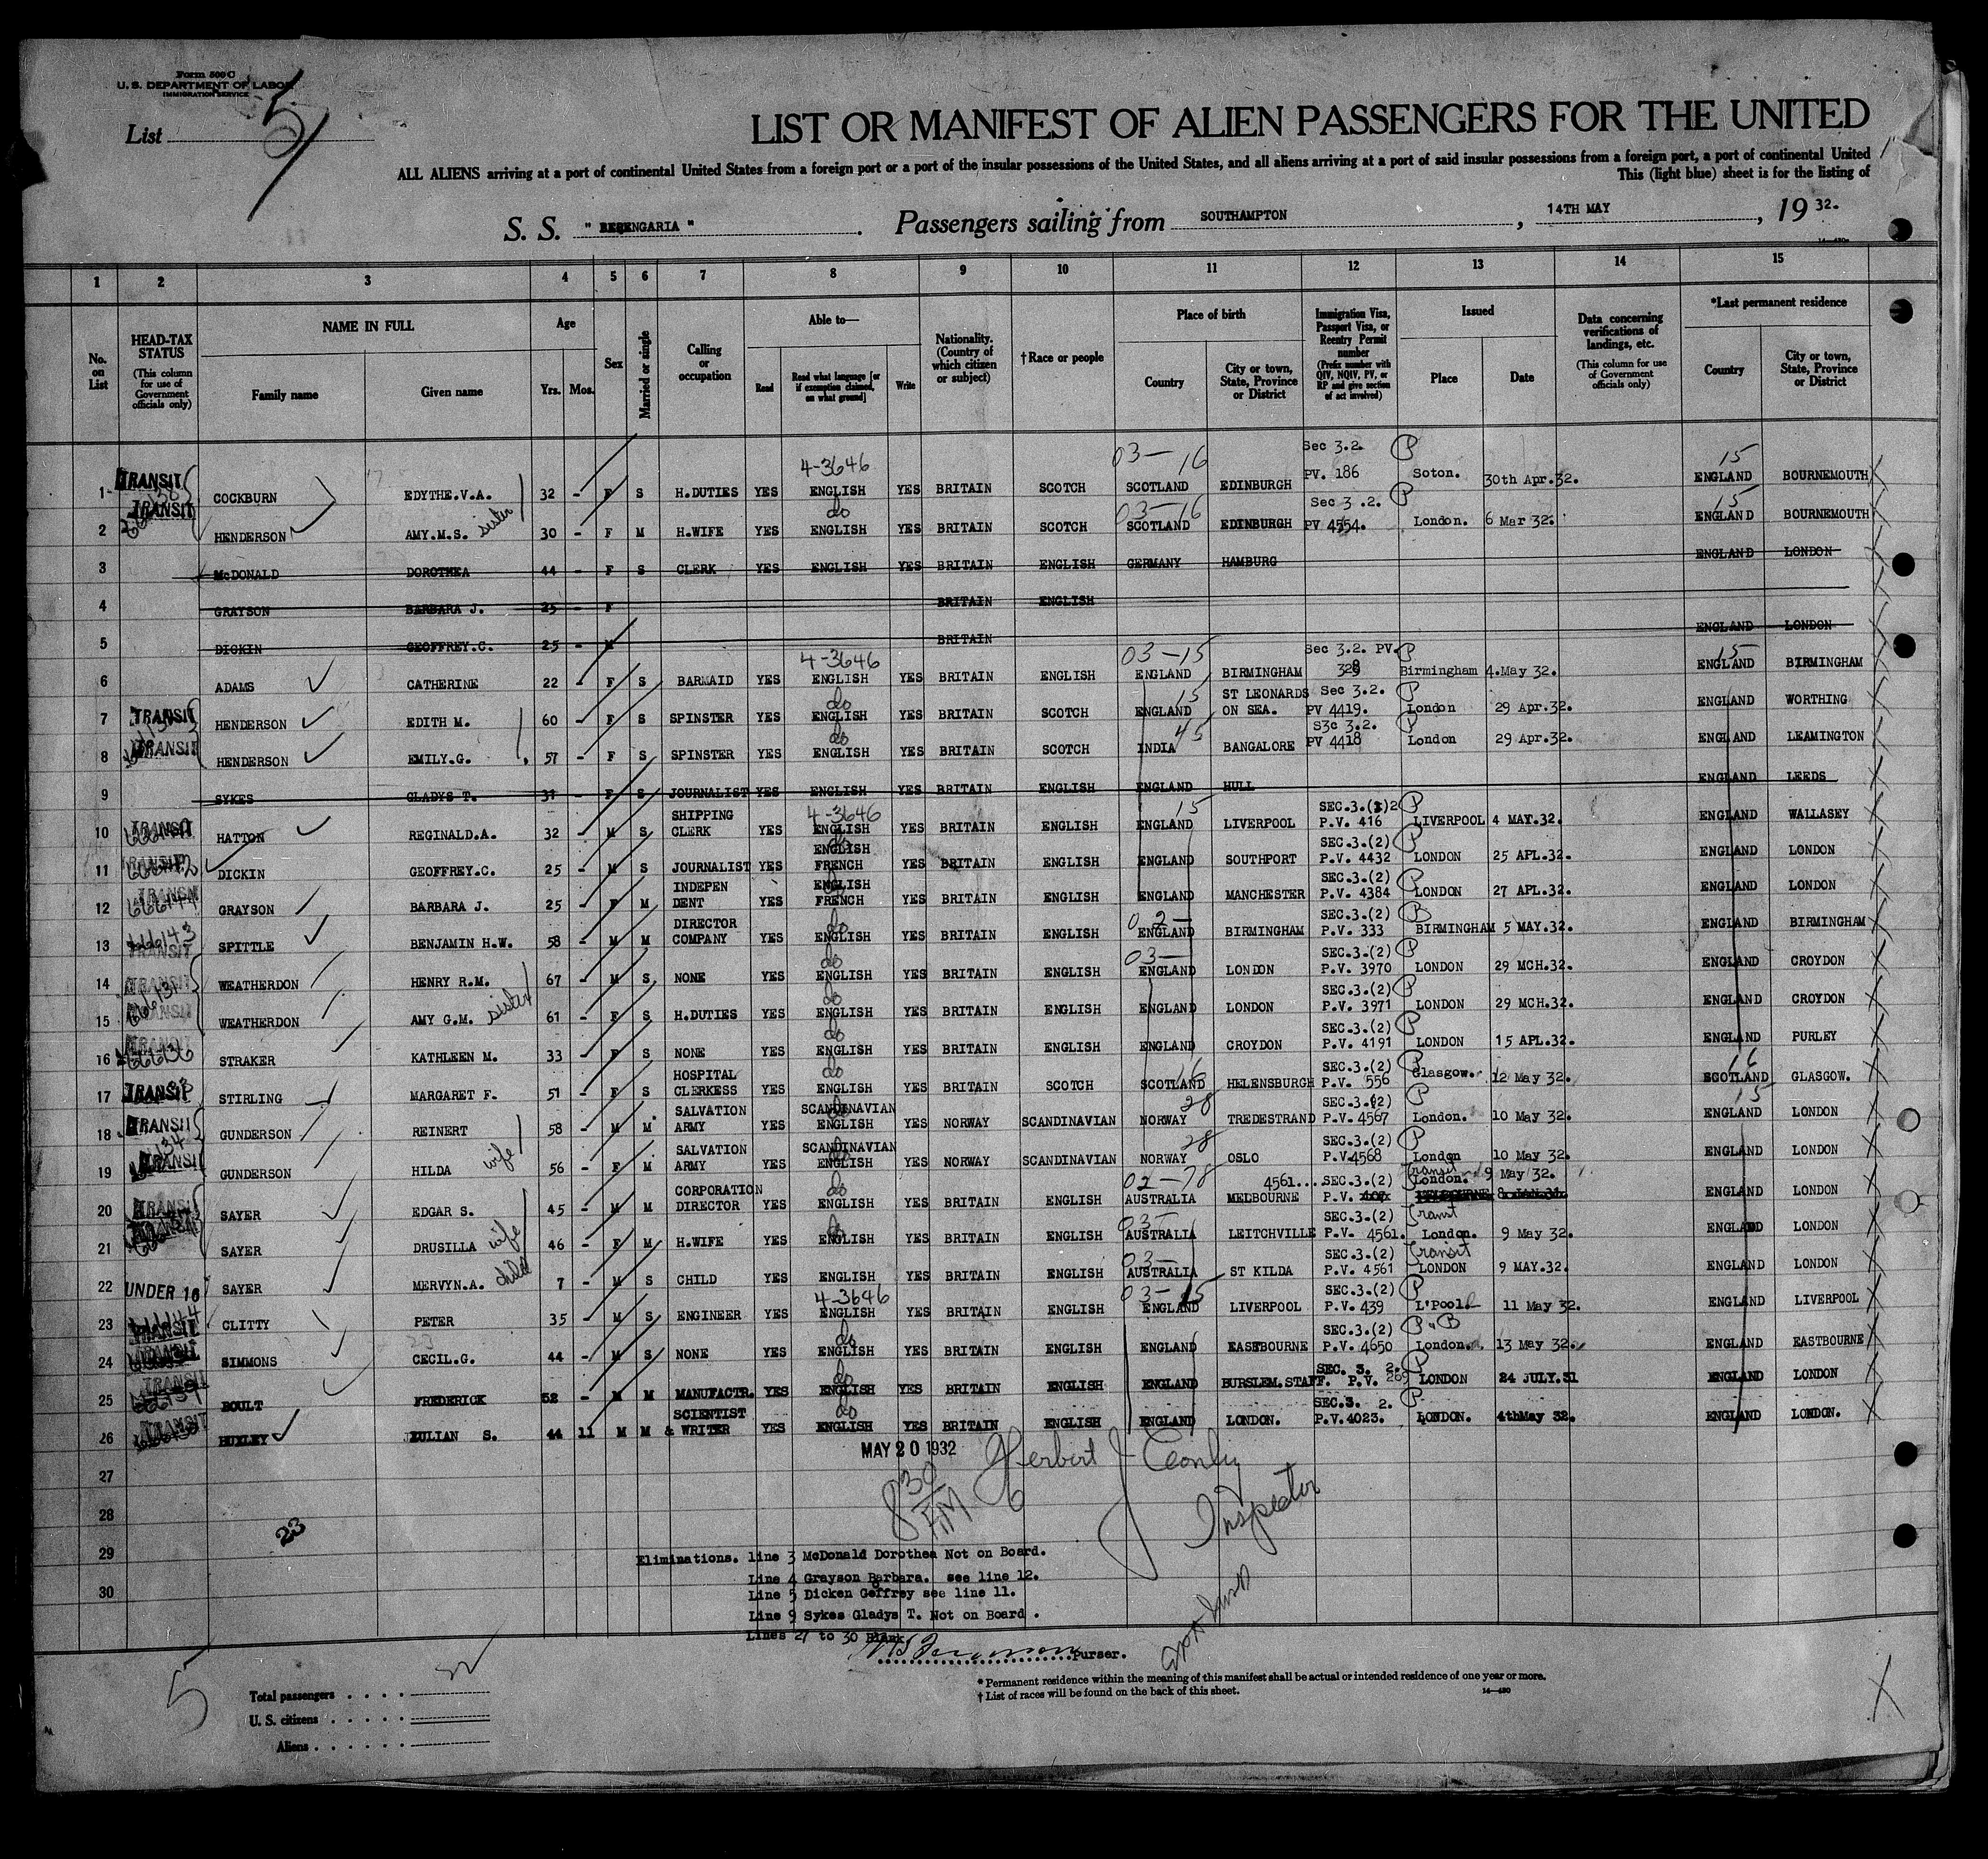 Form 500 C
U. S. DEPARTMENT OF LABOR
IMMIGRATION SERVICE
List 5
LIST OR MANIFEST OF ALIEN PASSENGERS FOR THE UNITED
ALL ALIENS arriving at a port of continental United States from a foreign port or a port of the insular possessions of the United States, and all aliens arriving at a port of said insular possessions from a foreign port, a port of continental United
This (light blue) sheet is for the listing of
S. S. " BERENGARIA ". Passengers sailing from SOUTHAMPTON, 14TH MAY, 19 32.
1 2 3 4 5 6 7 8 9 10 11 12 13 14 15
No. on List
HEAD-TAX STATUS (This column for use of Government officials only)
NAME IN FULL Family name Given name
Age Yrs. Mos.
Sex
Married or single
Calling or occupation
Able to— Read Read what language [or if exemption claimed, on what ground] Write
Nationality. (Country of which citizen or subject)
†Race or people
Place of birth Country City or town, State, Province or District
Immigration Visa, Passport Visa, or Reentry Permit number (Prefix number with QIV, NQIV, PV, or RP and give section of act involved)
Issued Place Date
Data concerning verifications of landings, etc. (This column for use of Government officials only)
*Last permanent residence Country City or town, State, Province or District
4-3646 03-16 Sec 3.2. P 15
1 TRANSIT COCKBURN EDYTHE.V.A. 32 - F S H.DUTIES YES ENGLISH YES BRITAIN SCOTCH SCOTLAND EDINBURGH PV. 186 Soton. 30th Apr.32. ENGLAND BOURNEMOUTH
do 03-16 Sec 3.2. P 15
2 TRANSIT HENDERSON AMY.M.S. sister 30 - F M H.WIFE YES ENGLISH YES BRITAIN SCOTCH SCOTLAND EDINBURGH PV 4554. London. 6 Mar 32. ENGLAND BOURNEMOUTH
3 McDONALD DOROTHEA 44 - F S CLERK YES ENGLISH YES BRITAIN ENGLISH GERMANY HAMBURG ENGLAND LONDON
4 GRAYSON BARBARA J. 25 - F BRITAIN ENGLISH
5 DICKIN GEOFFREY.C. 25 - M BRITAIN ENGLAND LONDON
4-3646 03-15 Sec 3.2. PV. P 15
6 ADAMS CATHERINE 22 - F S BARMAID YES ENGLISH YES BRITAIN ENGLISH ENGLAND BIRMINGHAM Birmingham 4.May 32. ENGLAND BIRMINGHAM
do 15 ST LEONARDS Sec 3.2. P
7 TRANSIT HENDERSON EDITH M. 60 - F S SPINSTER YES ENGLISH YES BRITAIN SCOTCH ENGLAND ON SEA. PV 4419. London 29 Apr.32. ENGLAND WORTHING
do 45 S3c 3.2. P
8 TRANSIT HENDERSON EMILY.G. 57 - F S SPINSTER YES ENGLISH YES BRITAIN SCOTCH INDIA BANGALORE PV 4418 London 29 Apr.32. ENGLAND LEAMINGTON
9 SYKES GLADYS T. 31 - F S JOURNALIST YES ENGLISH YES BRITAIN ENGLISH ENGLAND HULL ENGLAND LEEDS
SHIPPING 4-3646 15 P
10 TRANSIT HATTON REGINALD.A. 32 - M S CLERK YES ENGLISH YES BRITAIN ENGLISH ENGLAND LIVERPOOL P.V. 416 LIVERPOOL 4 MAY.32. ENGLAND WALLASEY
ENGLISH SEC.3.(2) P
11 TRANSIT DICKIN GEOFFREY.C. 25 - M S JOURNALIST YES FRENCH YES BRITAIN ENGLISH ENGLAND SOUTHPORT P.V. 4432 LONDON 25 APL.32. ENGLAND LONDON
INDEPEN ENGLISH SEC.3.(2) P
12 TRANSIT GRAYSON BARBARA J. 25 - F M DENT YES FRENCH YES BRITAIN ENGLISH ENGLAND MANCHESTER P.V. 4384 LONDON 27 APL.32. ENGLAND LONDON
DIRECTOR do 02- SEC.3.(2) B
13 TRANSIT SPITTLE BENJAMIN H.W. 58 - M M COMPANY YES ENGLISH YES BRITAIN ENGLISH ENGLAND BIRMINGHAM P.V. 333 BIRMINGHAM 5 MAY.32. ENGLAND BIRMINGHAM
do 03- SEC.3.(2) P
14 TRANSIT WEATHERDON HENRY R.M. 67 - M S NONE YES ENGLISH YES BRITAIN ENGLISH ENGLAND LONDON P.V. 3970 LONDON 29 MCH.32. ENGLAND CROYDON
do SEC.3.(2) P
15 TRANSIT WEATHERDON AMY G.M. sister 61 - F S H.DUTIES YES ENGLISH YES BRITAIN ENGLISH ENGLAND LONDON P.V. 3971 LONDON 29 MCH.32. ENGLAND CROYDON
do SEC.3.(2) P
16 TRANSIT STRAKER KATHLEEN M. 33 - F S NONE YES ENGLISH YES BRITAIN ENGLISH ENGLAND CROYDON P.V. 4191 LONDON 15 APL.32. ENGLAND PURLEY
HOSPITAL do 16 SEC.3.(2) P 16
17 TRANSIT STIRLING MARGARET F. 51 - F S CLERKESS YES ENGLISH YES BRITAIN SCOTCH SCOTLAND HELENSBURGH P.V. 556 Glasgow. 12 May 32. SCOTLAND GLASGOW.
SALVATION SCANDINAVIAN 28 SEC.3.(2) P 15
18 TRANSIT GUNDERSON REINERT 58 - M M ARMY YES ENGLISH YES NORWAY SCANDINAVIAN NORWAY TREDESTRAND P.V. 4567 London. 10 May 32. ENGLAND LONDON
SALVATION SCANDINAVIAN 28 SEC.3.(2) P
19 TRANSIT GUNDERSON HILDA wife 56 - F M ARMY YES ENGLISH YES NORWAY SCANDINAVIAN NORWAY OSLO P.V.4568 London 10 May 32. ENGLAND LONDON
CORPORATION do 02-78 4561... SEC.3.(2) Transit London. 9 May 32.
20 TRANSIT SAYER EDGAR S. 45 - M M DIRECTOR YES ENGLISH YES BRITAIN ENGLISH AUSTRALIA MELBOURNE P.V. ENGLAND LONDON
do 03- SEC.3.(2) Transit
21 SAYER DRUSILLA wife 46 - F M H.WIFE YES ENGLISH YES BRITAIN ENGLISH AUSTRALIA LEITCHVILLE P.V. 4561. London. 9 May 32. ENGLAND LONDON
03- SEC.3.(2) Transit
22 UNDER 16 SAYER MERVYN.A. child 7 - M S CHILD YES ENGLISH YES BRITAIN ENGLISH AUSTRALIA ST KILDA P.V. 4561 LONDON 9 MAY.32. ENGLAND LONDON
4-3646 03-15 SEC.3.(2) P
23 TRANSIT CLITTY PETER 35 - M S ENGINEER YES ENGLISH YES BRITAIN ENGLISH ENGLAND LIVERPOOL P.V. 439 L'Pool. 11 May 32. ENGLAND LIVERPOOL
do SEC.3.(2) P B
24 TRANSIT SIMMONS CECIL.G. 44 - M S NONE YES ENGLISH YES BRITAIN ENGLISH ENGLAND EASTBOURNE P.V. 4650 London. 13 May 32. ENGLAND EASTBOURNE
do SEC. 3. 2. P
25 TRANSIT BOULT FREDERICK 52 - M M MANUFACTR. YES ENGLISH YES BRITAIN ENGLISH ENGLAND BURSLEM.STAFF. P.V. 269 LONDON 24 JULY.31 ENGLAND LONDON
SCIENTIST do SEC.3. 2. P
26 TRANSIT HUXLEY JULIAN S. 44 11 M M & WRITER YES ENGLISH YES BRITAIN ENGLISH ENGLAND LONDON. P.V.4023. LONDON. 4thMay 32. ENGLAND LONDON.
MAY 20 1932 Herbert J
27
830 PM Inspector
28
23
29
30
Eliminations. line 3 McDonald Dorothea Not on Board.
Line 4 Grayson Barbara. see line 12.
Line 5 Dicken Geffrey see line 11.
Line 9 Sykes Gladys T. Not on Board.
Lines 27 to 30 Blank
Purser.
5
Total passengers
U. S. citizens
Aliens
* Permanent residence within the meaning of this manifest shall be actual or intended residence of one year or more.
† List of races will be found on the back of this sheet.
14—430